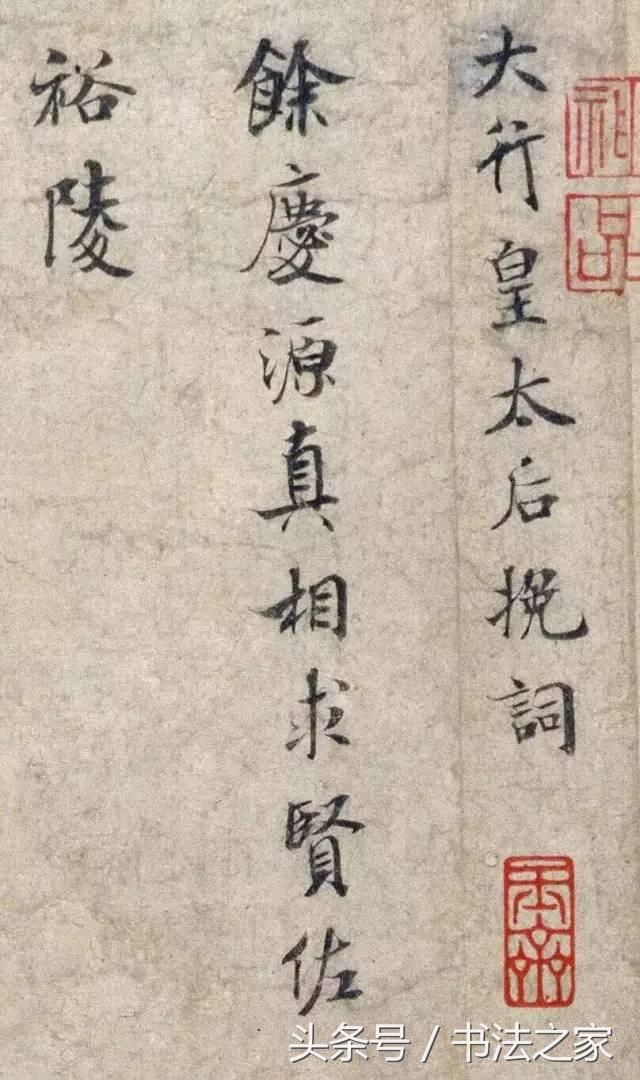 大行皇太后挽詞
餘慶源真相求賢佐
裕陵
头条号 / 书法之家